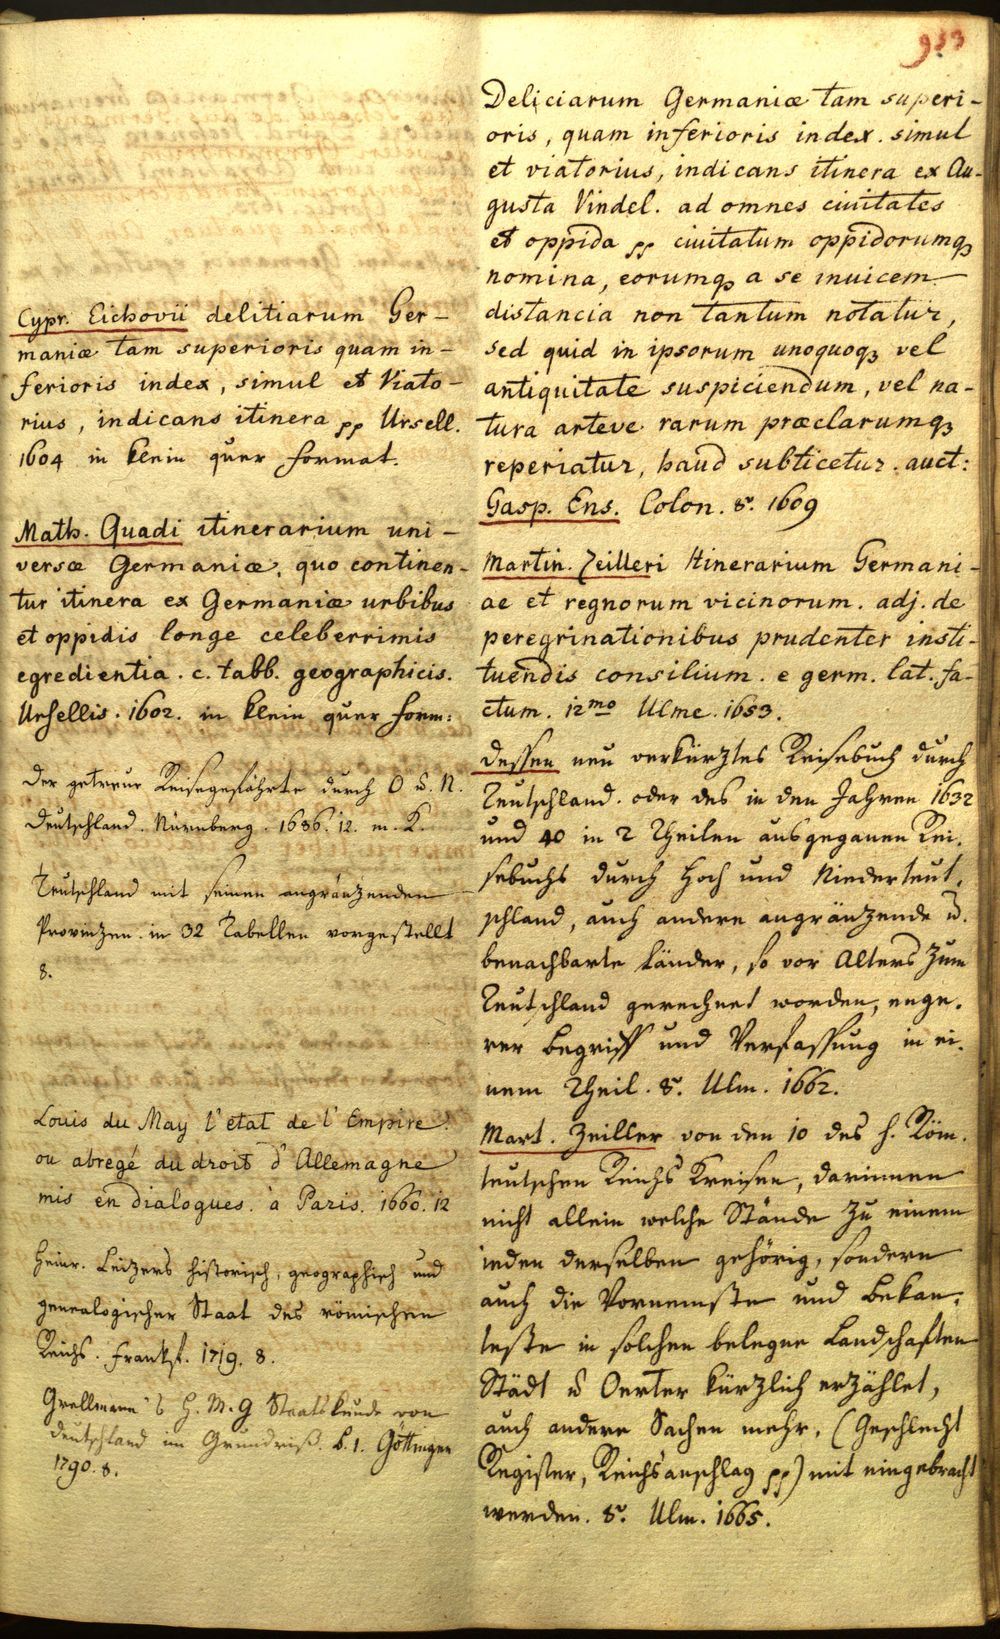 953
Cypr. Eichovii delitiarum Ger-
maniæ tam superioris quam in-
ferioris index, simul et Viato-
rius, indicans itinera pp Ursell.
1604 in klein quer format.
Math. Quadi itinerarium uni-
versæ Germaniæ, quo continen-
tur itinera ex Germaniæ urbibus
et oppidis longe celeberrimis
egredientia. c. tabb. geographicis.
Ursellis. 1602. in klein quer form:
Der getreue Reisegefährte durch O u. N.
Deutschland. Nürnberg. 1686. 12. m. K.
Teutschland mit seinen angränzenden
Provinzen. in 32 Tabellen vorgestellt
8.
Louis du May l'etat de l'Empire.
ou abregé du droit d'Allemagne
mis en dialogues. à Paris. 1660. 12
Heinr. Leizers historisch, geographisch und
genealogischer Staat des römischen
Reichs. Frankf. 1719. 8.
Grellmann's H. M. G Staatskunde von
Deutschland im Grundriß. b. 1. Göttingen
1790. 8.
Deliciarum Germaniæ tam superi-
oris, quam inferioris index. simul
et viatorius, indicans itinera ex Au-
gusta Vindel. ad omnes ciuitates
et oppida pp ciuitatum oppidorumqꝫ
nomina, eorumqꝫ a se inuicem
distancia non tantum notatur,
sed quid in ipsorum unoquoqꝫ vel
antiquitate suspiciendum, vel na-
tura arteve rarum præclarumqꝫ
reperiatur, haud subticetur. auct:
Gasp. Ens. Colon. 8. 1609
Martin. Zeilleri Itinerarium Germani-
ae et regnorum vicinorum. adj. de
peregrinationibus prudenter insti-
tuendis consilium. e germ. lat. fa-
ctum. 12mo Ulmæ. 1653.
Dessen neu verkürztes Reisebuch durch
Teutschland. oder des in den Jahren 1632
und 40 in 2 Theilen ausgegangenen Rei-
sebuchs durch Hoch und Niederteut-
schland, auch andere angränzende u.
benachbarte Länder, so vor Alters zum
Teutschland gerechnet worden, enge-
rer Begriff und Verfassung in ei-
nem Theil. 8. Ulm. 1662.
Mart. Zeiller von den 10 des H. Röm.
teutschen Reichs Kreisen, darinnen
nicht allein welche Stände zu einem
ieden derselben gehörig, sondern
auch die Vornemste und bekan-
teste in solchen belegne Landschaften
Städt u Oerter kürzlich erzählet,
auch andere Sachen mehr, (Geschlecht
Register, Reichsanschlag pp) mit eingebracht
werden. 8. Ulm. 1665.